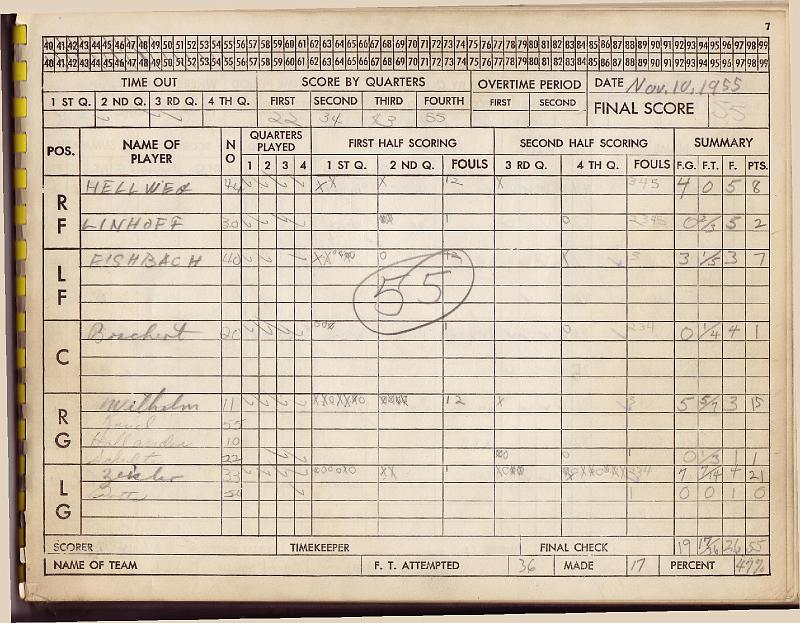 7
40 41 42 43 44 45 46 47 48 49 50 51 52 53 54 55 56 57 58 59 60 61 62 63 64 65 66 67 68 69 70 71 72 73 74 75 76 77 78 79 80 81 82 83 84 85 86 87 88 89 90 91 92 93 94 95 96 97 98 99
40 41 42 43 44 45 46 47 48 49 50 51 52 53 54 55 56 57 58 59 60 61 62 63 64 65 66 67 68 69 70 71 72 73 74 75 76 77 78 79 80 81 82 83 84 85 86 87 88 89 90 91 92 93 94 95 96 97 98 99
TIME OUT SCORE BY QUARTERS OVERTIME PERIOD DATE Nov. 10, 1955
1 ST Q. 2 ND Q. 3 RD Q. 4 TH Q. FIRST SECOND THIRD FOURTH FIRST SECOND FINAL SCORE 55
22 34 43 55
POS. NAME OF PLAYER NO QUARTERS PLAYED FIRST HALF SCORING SECOND HALF SCORING SUMMARY
1 2 3 4 1 ST Q. 2 ND Q. FOULS 3 RD Q. 4 TH Q. FOULS F.G. F.T. F. PTS.
RF HELLWEG 44 XX X 12 X 345 4 0 5 8
LINHOFF 30 1 0 2345 0 2/3 5 2
LF EISHBACH 40 0 12 X 3 3 1/5 3 7
55
C Boschert 20 1 0 234 0 1/4 4 1
RG Wilhelm 11 12 X 3 5 5/7 3 15
55
Hollander 10
Schultz 22 0 1 0 1/3 1 1
LG Zeisler 33 XX 234 7 7/14 4 21
50 1 0 0 1 0
SCORER TIMEKEEPER FINAL CHECK 19 17/36 26 55
NAME OF TEAM F. T. ATTEMPTED 36 MADE 17 PERCENT 47%